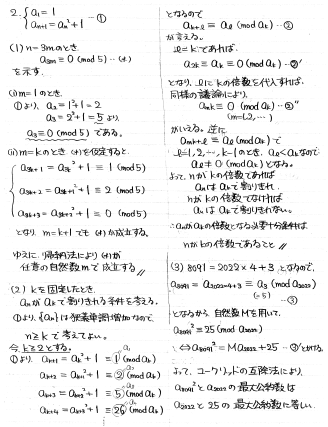 2. { a₁ = 1
a_{n+1} = a_n² + 1 … ①
(1) n = 3m のとき
a_{3m} ≡ 0 (mod 5) … (*)
を示す.
(i) m = 1 のとき
①より, a₂ = 1² + 1 = 2
a₃ = 2² + 1 = 5 より
a₃ ≡ 0 (mod 5) である.
(ii) m = k のとき (*) を仮定すると.
a_{3k+1} = a_{3k}² + 1 ≡ 1 (mod 5)
a_{3k+2} = a_{3k+1}² + 1 ≡ 2 (mod 5)
a_{3k+3} = a_{3k+2}² + 1 ≡ 0 (mod 5)
となり m = k+1 でも (*) が成立する.
ゆえに, 帰納法により (*) が
任意の自然数 m で成立する //
(2) k を固定したとき.
a_n が a_k で割りきれる条件を考える.
①より, {a_n} は 単調増加なので
n ≧ k で考えてよい.
今, k ≧ 2 とする.
①より a_{k+1} = a_k² + 1 ≡ 1 (mod a_k)
a_{k+2} = a_{k+1}² + 1 ≡ 2 (mod a_k)
a_{k+3} = a_{k+2}² + 1 ≡ 5 (mod a_k)
a_{k+4} = a_{k+3}² + 1 ≡ 26 (mod a_k)
となるので
a_{k+l} ≡ a_l (mod a_k) … ②
が言える.
l = k であれば.
a_{2k} ≡ a_k ≡ 0 (mod a_k) … ②'
となり, l に k の倍数を代入すれば,
同様の議論により,
a_{mk} ≡ 0 (mod a_k) … ②''
(m = 1, 2, …)
がいえる. 逆に
a_{mk+l} ≡ a_l (mod a_k) で
l = 1, 2, …, k-1 のとき, a_l < a_k なので
a_l ≢ 0 (mod a_k) となる.
よって, n が k の倍数であれば
a_n は a_k で割りきれ.
n が k の倍数でなければ
a_n は a_k で割りきれない.
∴ a_n が a_k の倍数となる必要十分条件は
n が k の倍数であること //
(3) 8091 = 2022 × 4 + 3 となるので,
a_{8091} = a_{2022×4+3} ≡ a₃ (mod a_{2022})
(= 5) … ③
となるから, 自然数 M を用いて.
a_{8091}² ≡ 25 (mod a_{2022})
⇔ a_{8091}² = M a_{2022} + 25 … ③' とかける.
よって, ユークリッドの互除法により,
a_{8091}² と a_{2022} の最大公約数は
a_{2022} と 25 の最大公約数に等しい.